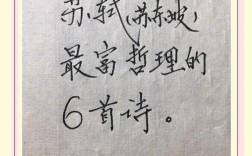 苏轼(苏东坡)
最富哲理的
6首诗。